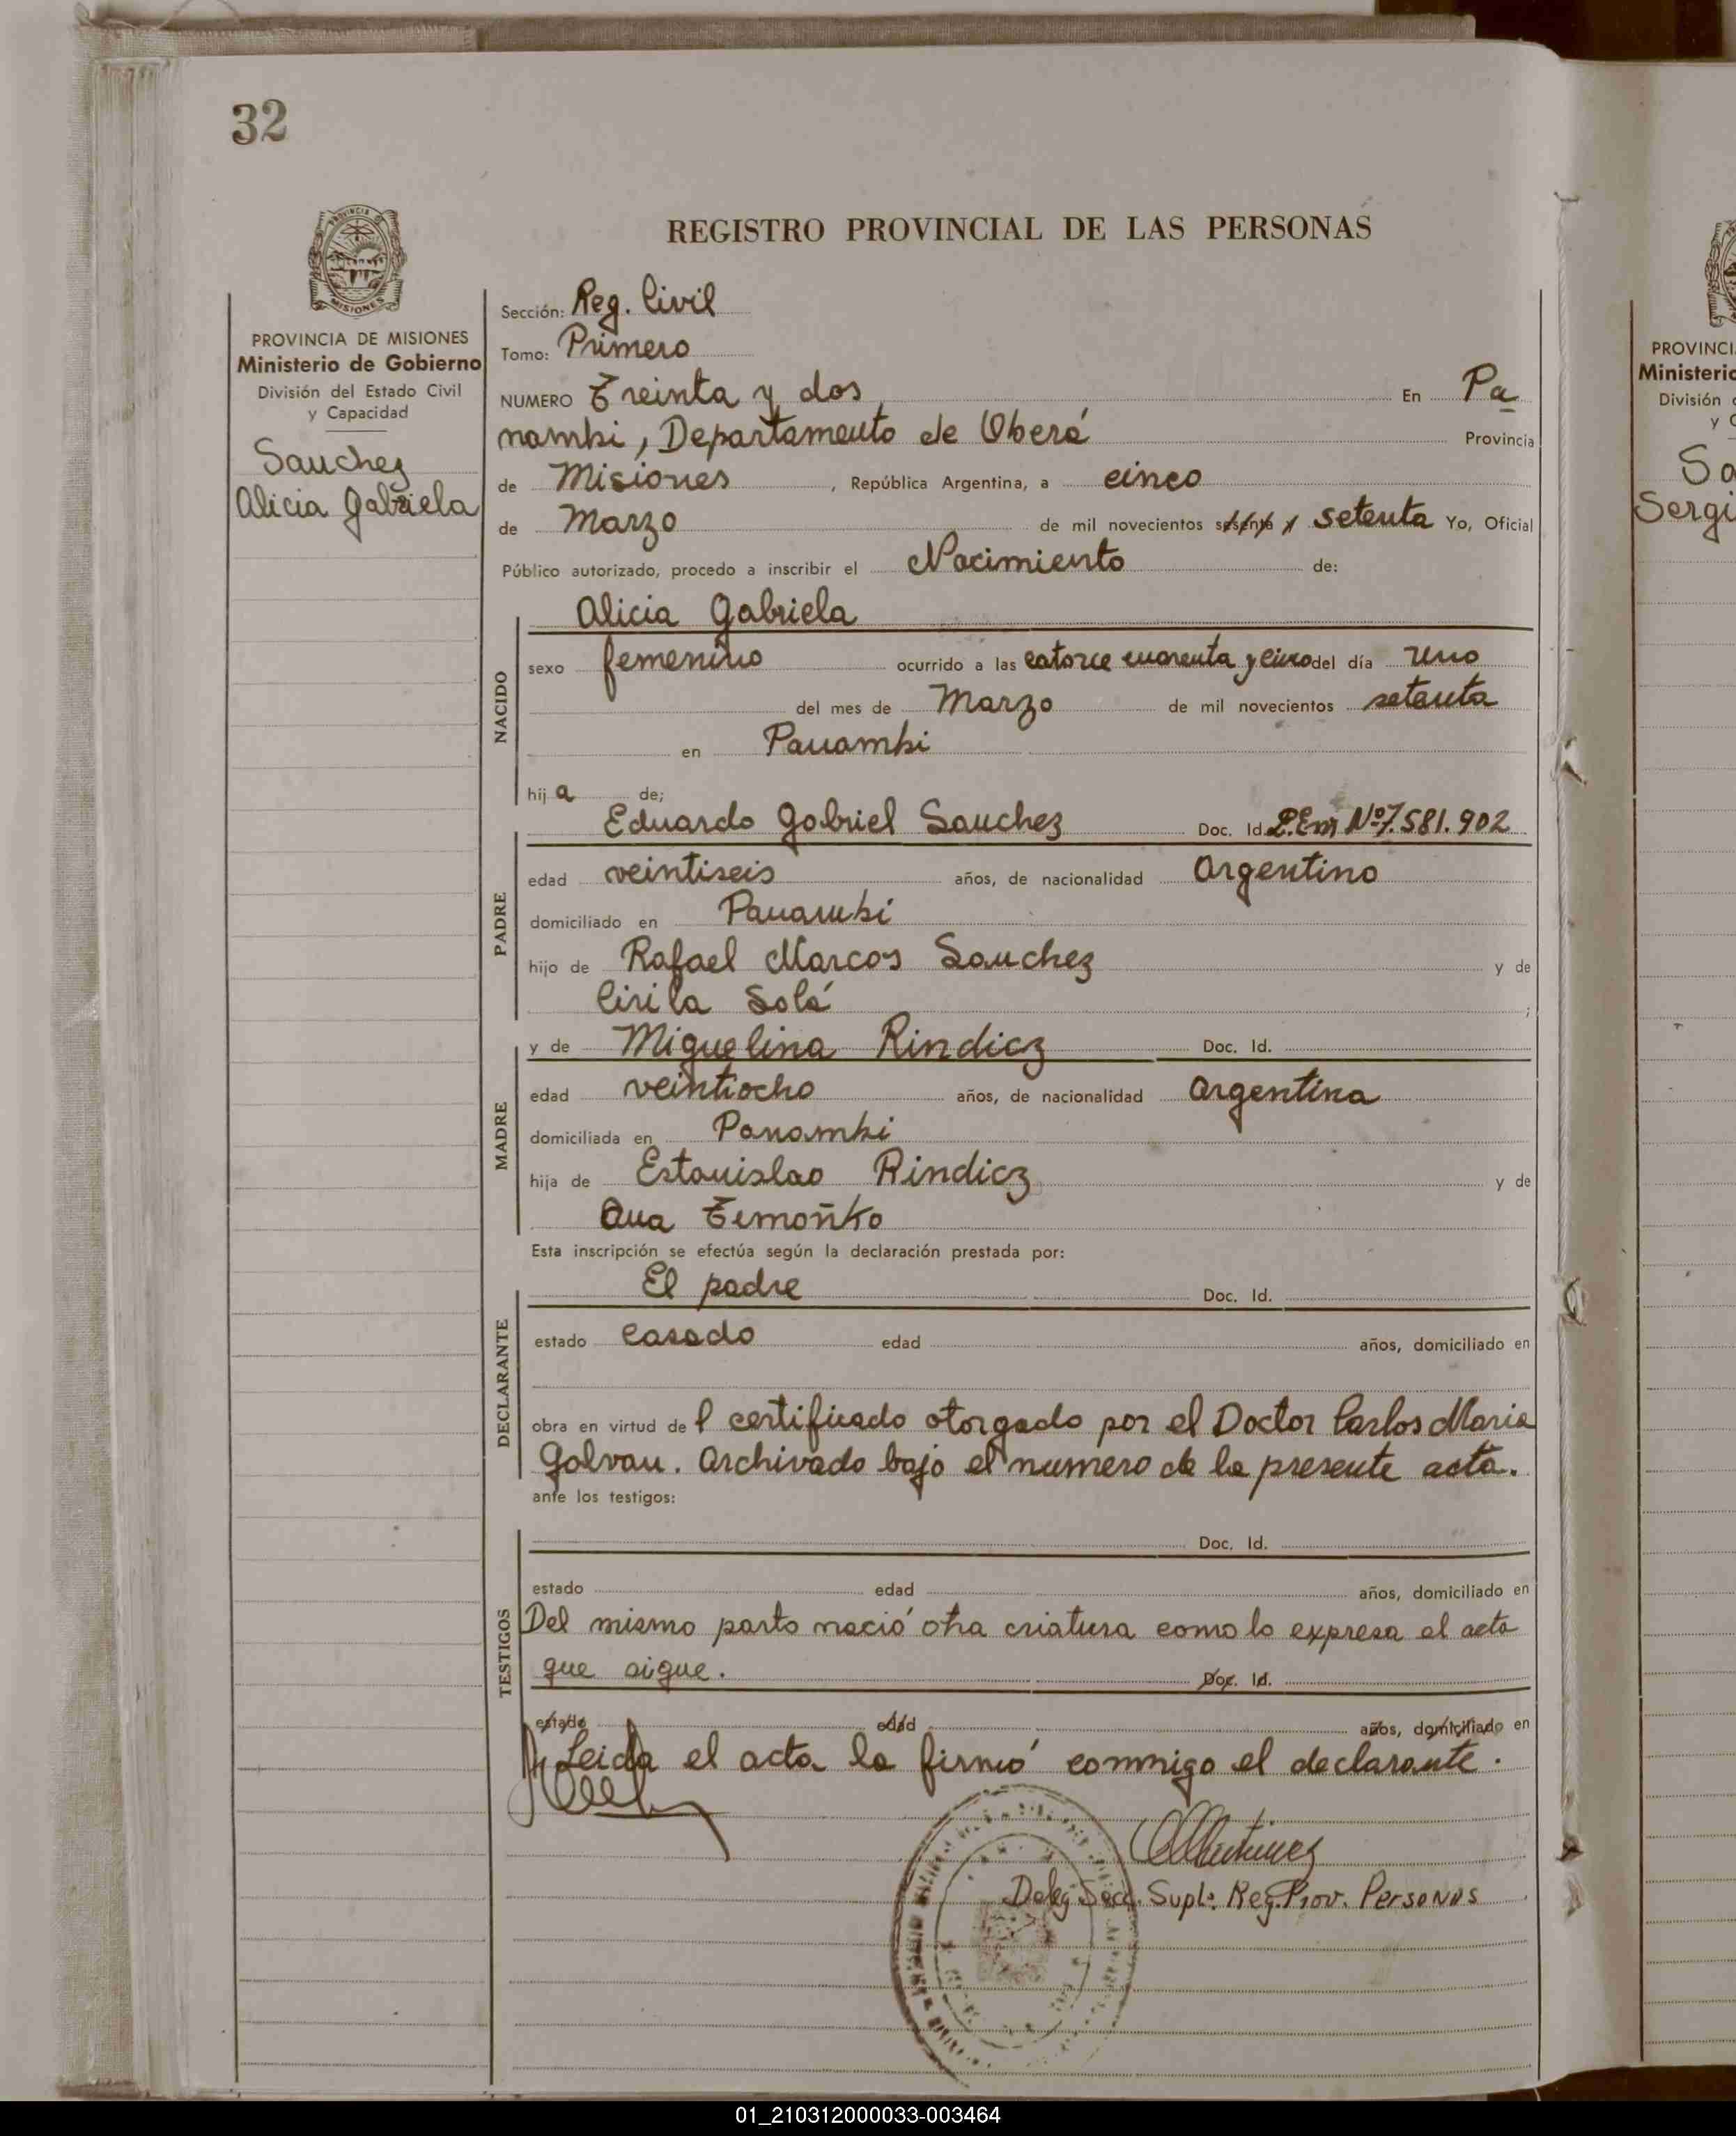 32
REGISTRO PROVINCIAL DE LAS PERSONAS
PROVINCIA DE MISIONES
Ministerio de Gobierno
División del Estado Civil
y Capacidad
Sanchez
Alicia Gabriela
Sección: Reg. Civil
Tomo: Primero
NUMERO Treinta y dos En Pa
nambi, Departamento de Oberá Provincia
de Misiones, República Argentina, a cinco
de Marzo de mil novecientos sesenta y setenta Yo, Oficial
Público autorizado, procedo a inscribir el Nacimiento de:
NACIDO
Alicia Gabriela
sexo femenino ocurrido a las catorce cuarenta y cinco del día uno
del mes de Marzo de mil novecientos setenta
en Panambi
hija de;
PADRE
Eduardo Gabriel Sanchez Doc. Id. Nº7.581.902
edad veintiseis años, de nacionalidad Argentino
domiciliado en Panambi
hijo de Rafael Marcos Sanchez y de
Cirila Solá ;
MADRE
y de Miguelina Rindicz Doc. Id.
edad veintiocho años, de nacionalidad Argentina
domiciliada en Panambi
hija de Estanislao Rindicz y de
Ana Temoñko
Esta inscripción se efectúa según la declaración prestada por:
DECLARANTE
El padre Doc. Id.
estado casado edad años, domiciliado en
obra en virtud del certificado otorgado por el Doctor Carlos Maria
Galvan. Archivado bajo el numero de la presente acta.
ante los testigos:
TESTIGOS
Doc. Id.
estado edad años, domiciliado en
Del mismo parto nació otra criatura como lo expresa el acta
que sigue. Doc. Id.
estado edad años, domiciliado en
Leida el acta la firmó conmigo el declarante.
Deleg. Secc. Supl. Reg. Prov. Personas
PROVINCI
Ministerio
División
y C
Sa
Sergi
01_210312000033-003464